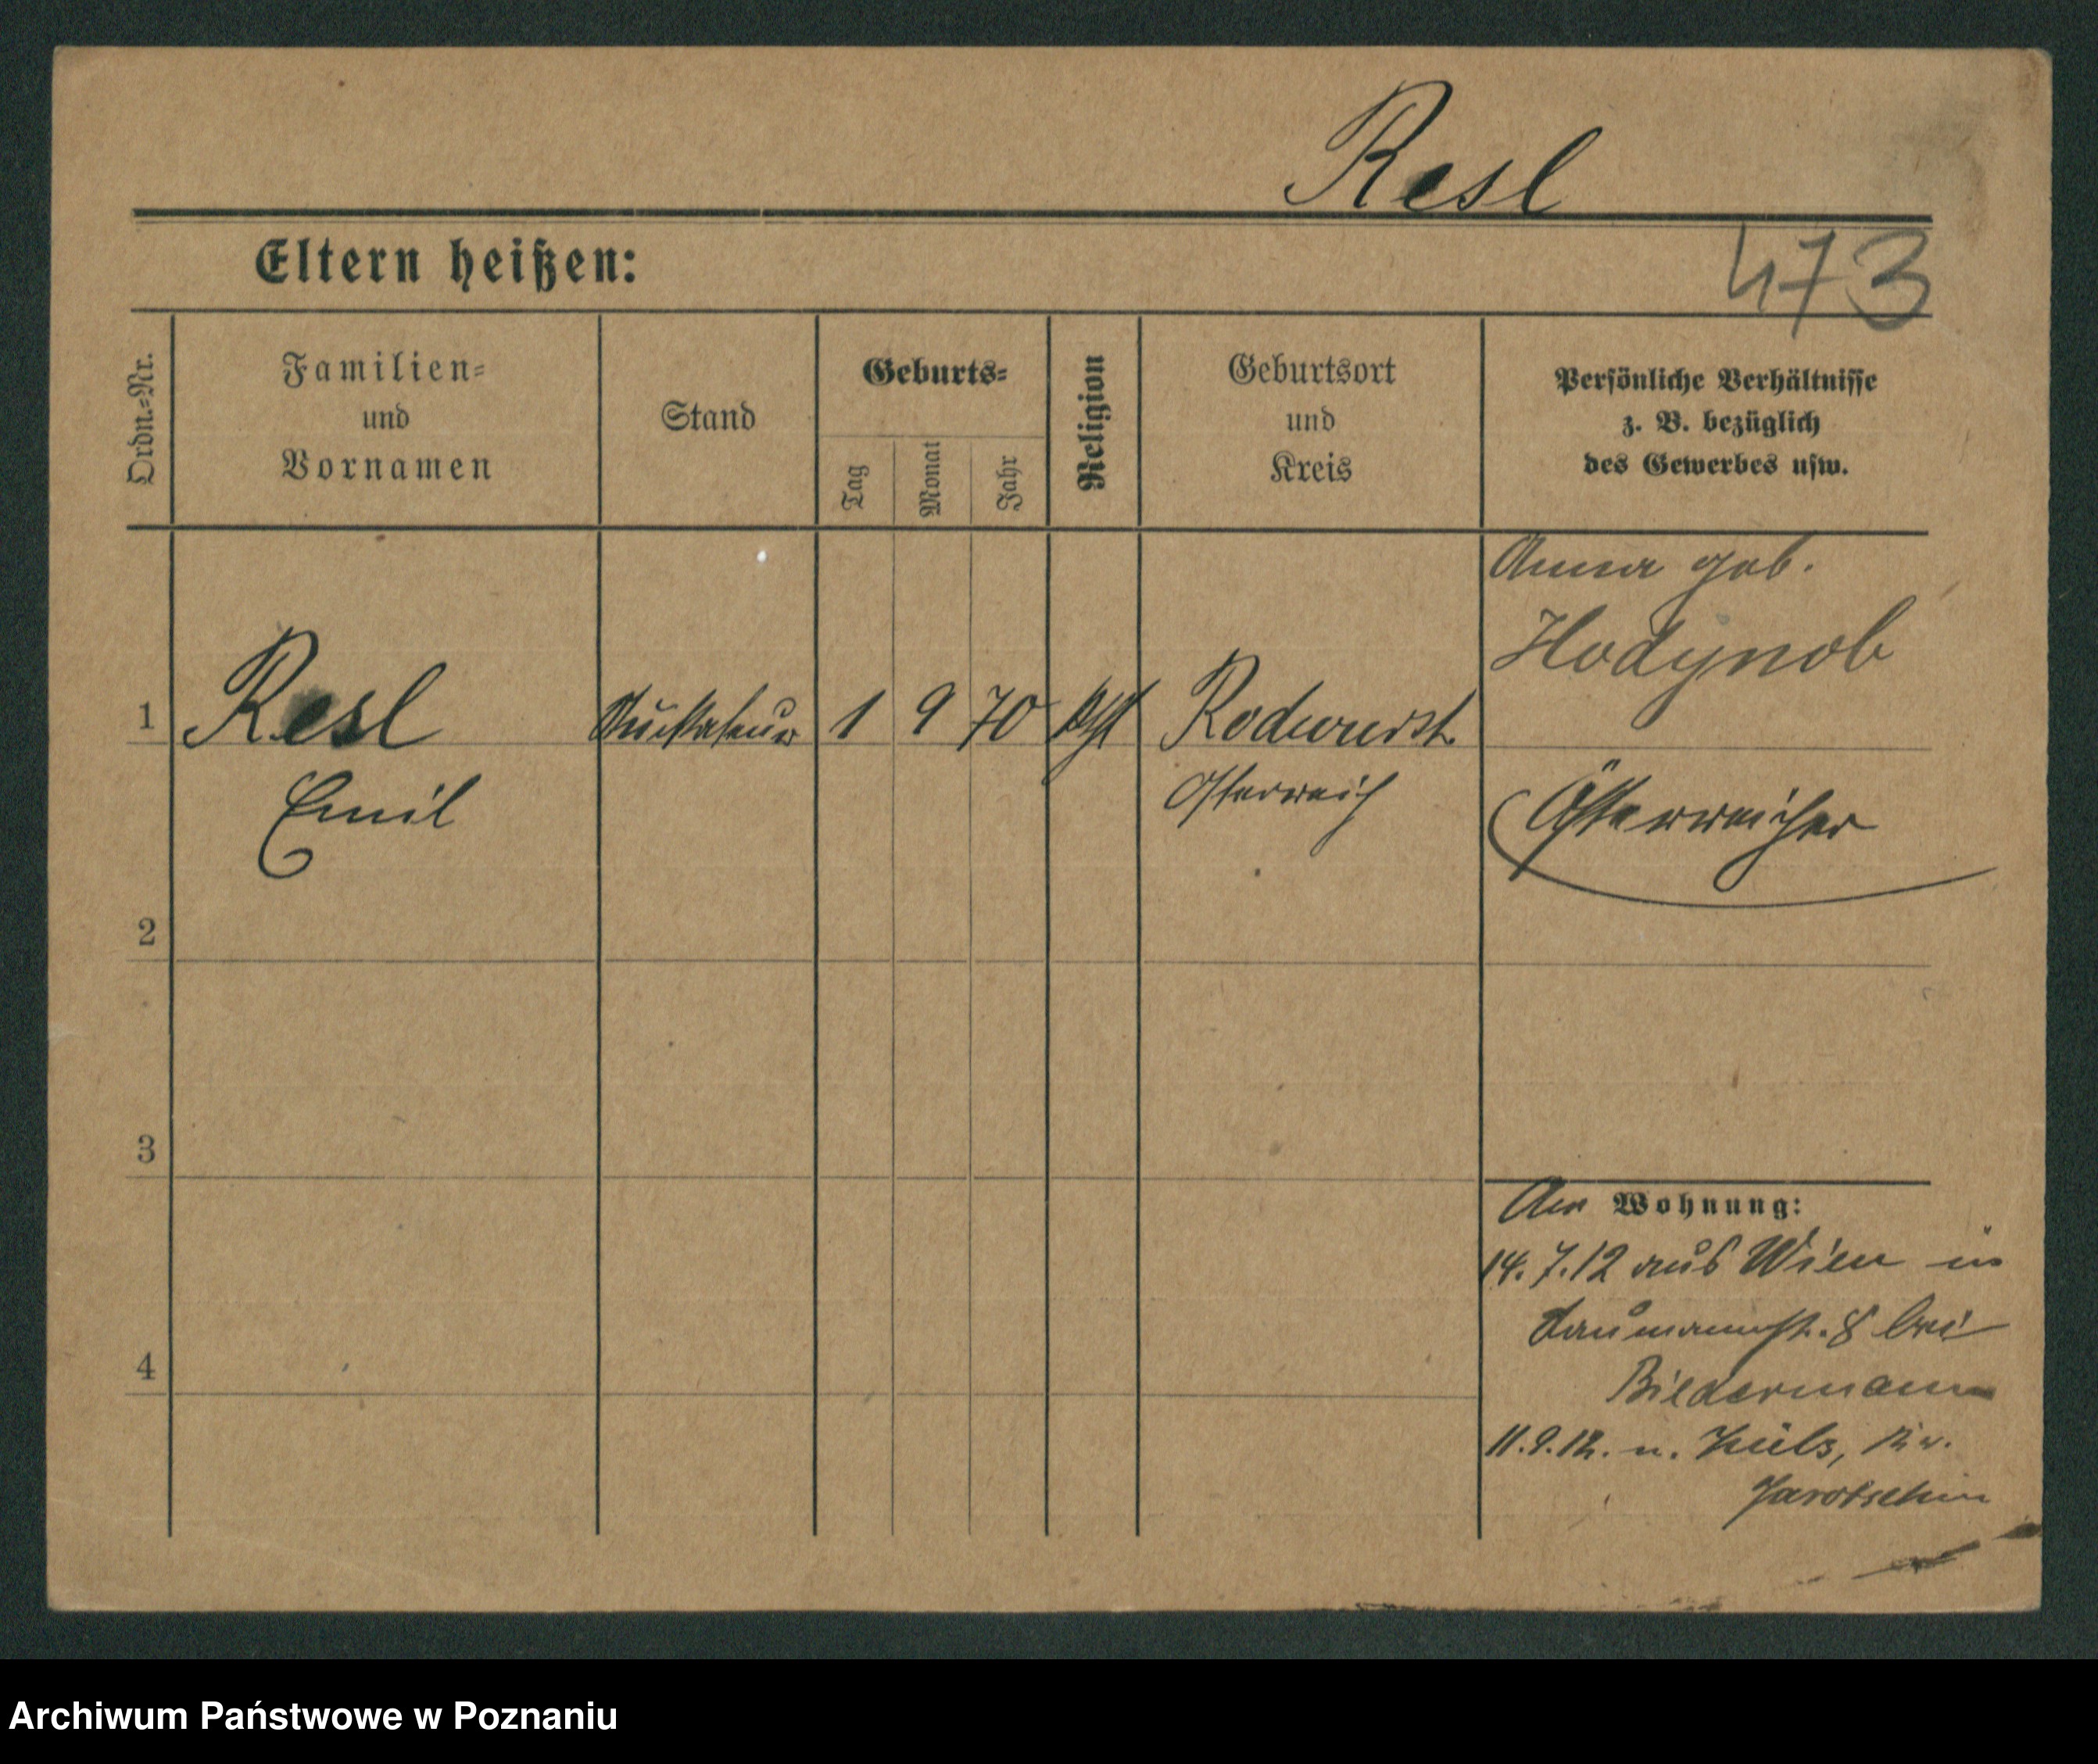 Resl
473
Eltern heißen:
Ordn.=Nr.
Familien=
und
Vornamen
Stand
Geburts=
Tag
Monat
Jahr
Religion
Geburtsort
und
Kreis
Persönliche Verhältnisse
z. B. bezüglich
des Gewerbes usw.
Anna geb.
Hodynob
1
Resl
Stuckateur
1
9
70
kth
Rodwurst
Österreich
Emil
Österreicher
2
3
4
Wohnung:
14.7.12 aus Wien in
Naumannstr. 8 bei
Biedermann
11.9.12. n.
Jarotschin
Archiwum Państwowe w Poznaniu